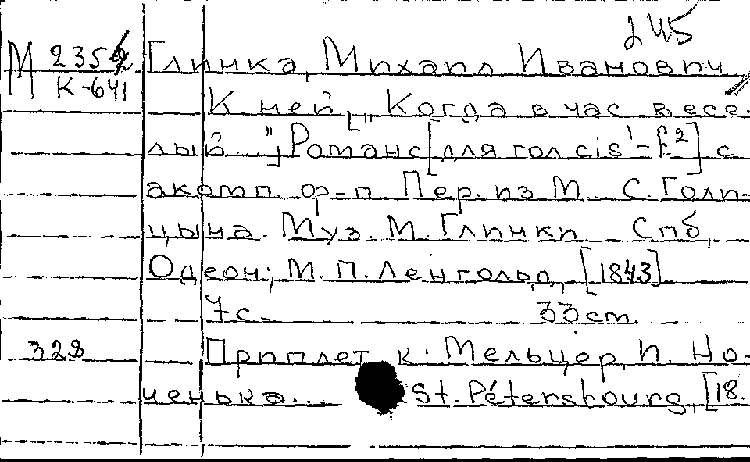 245
М 2354 Глинка, Михаил Иванович.
К-641 К ней. [„Когда в час весе-
лый..."] Романс [для гол cis¹-f²] с
акомп. ф-п. Пер. из М. С. Голи-
цына. Муз. М. Глинки. Спб,
Одеон; М. П. Ленгольд, [1843]
7с. 33cm.
328 Приплет к: Мельцер, И. Но-
ченька... St. Pétersbourg, [18.